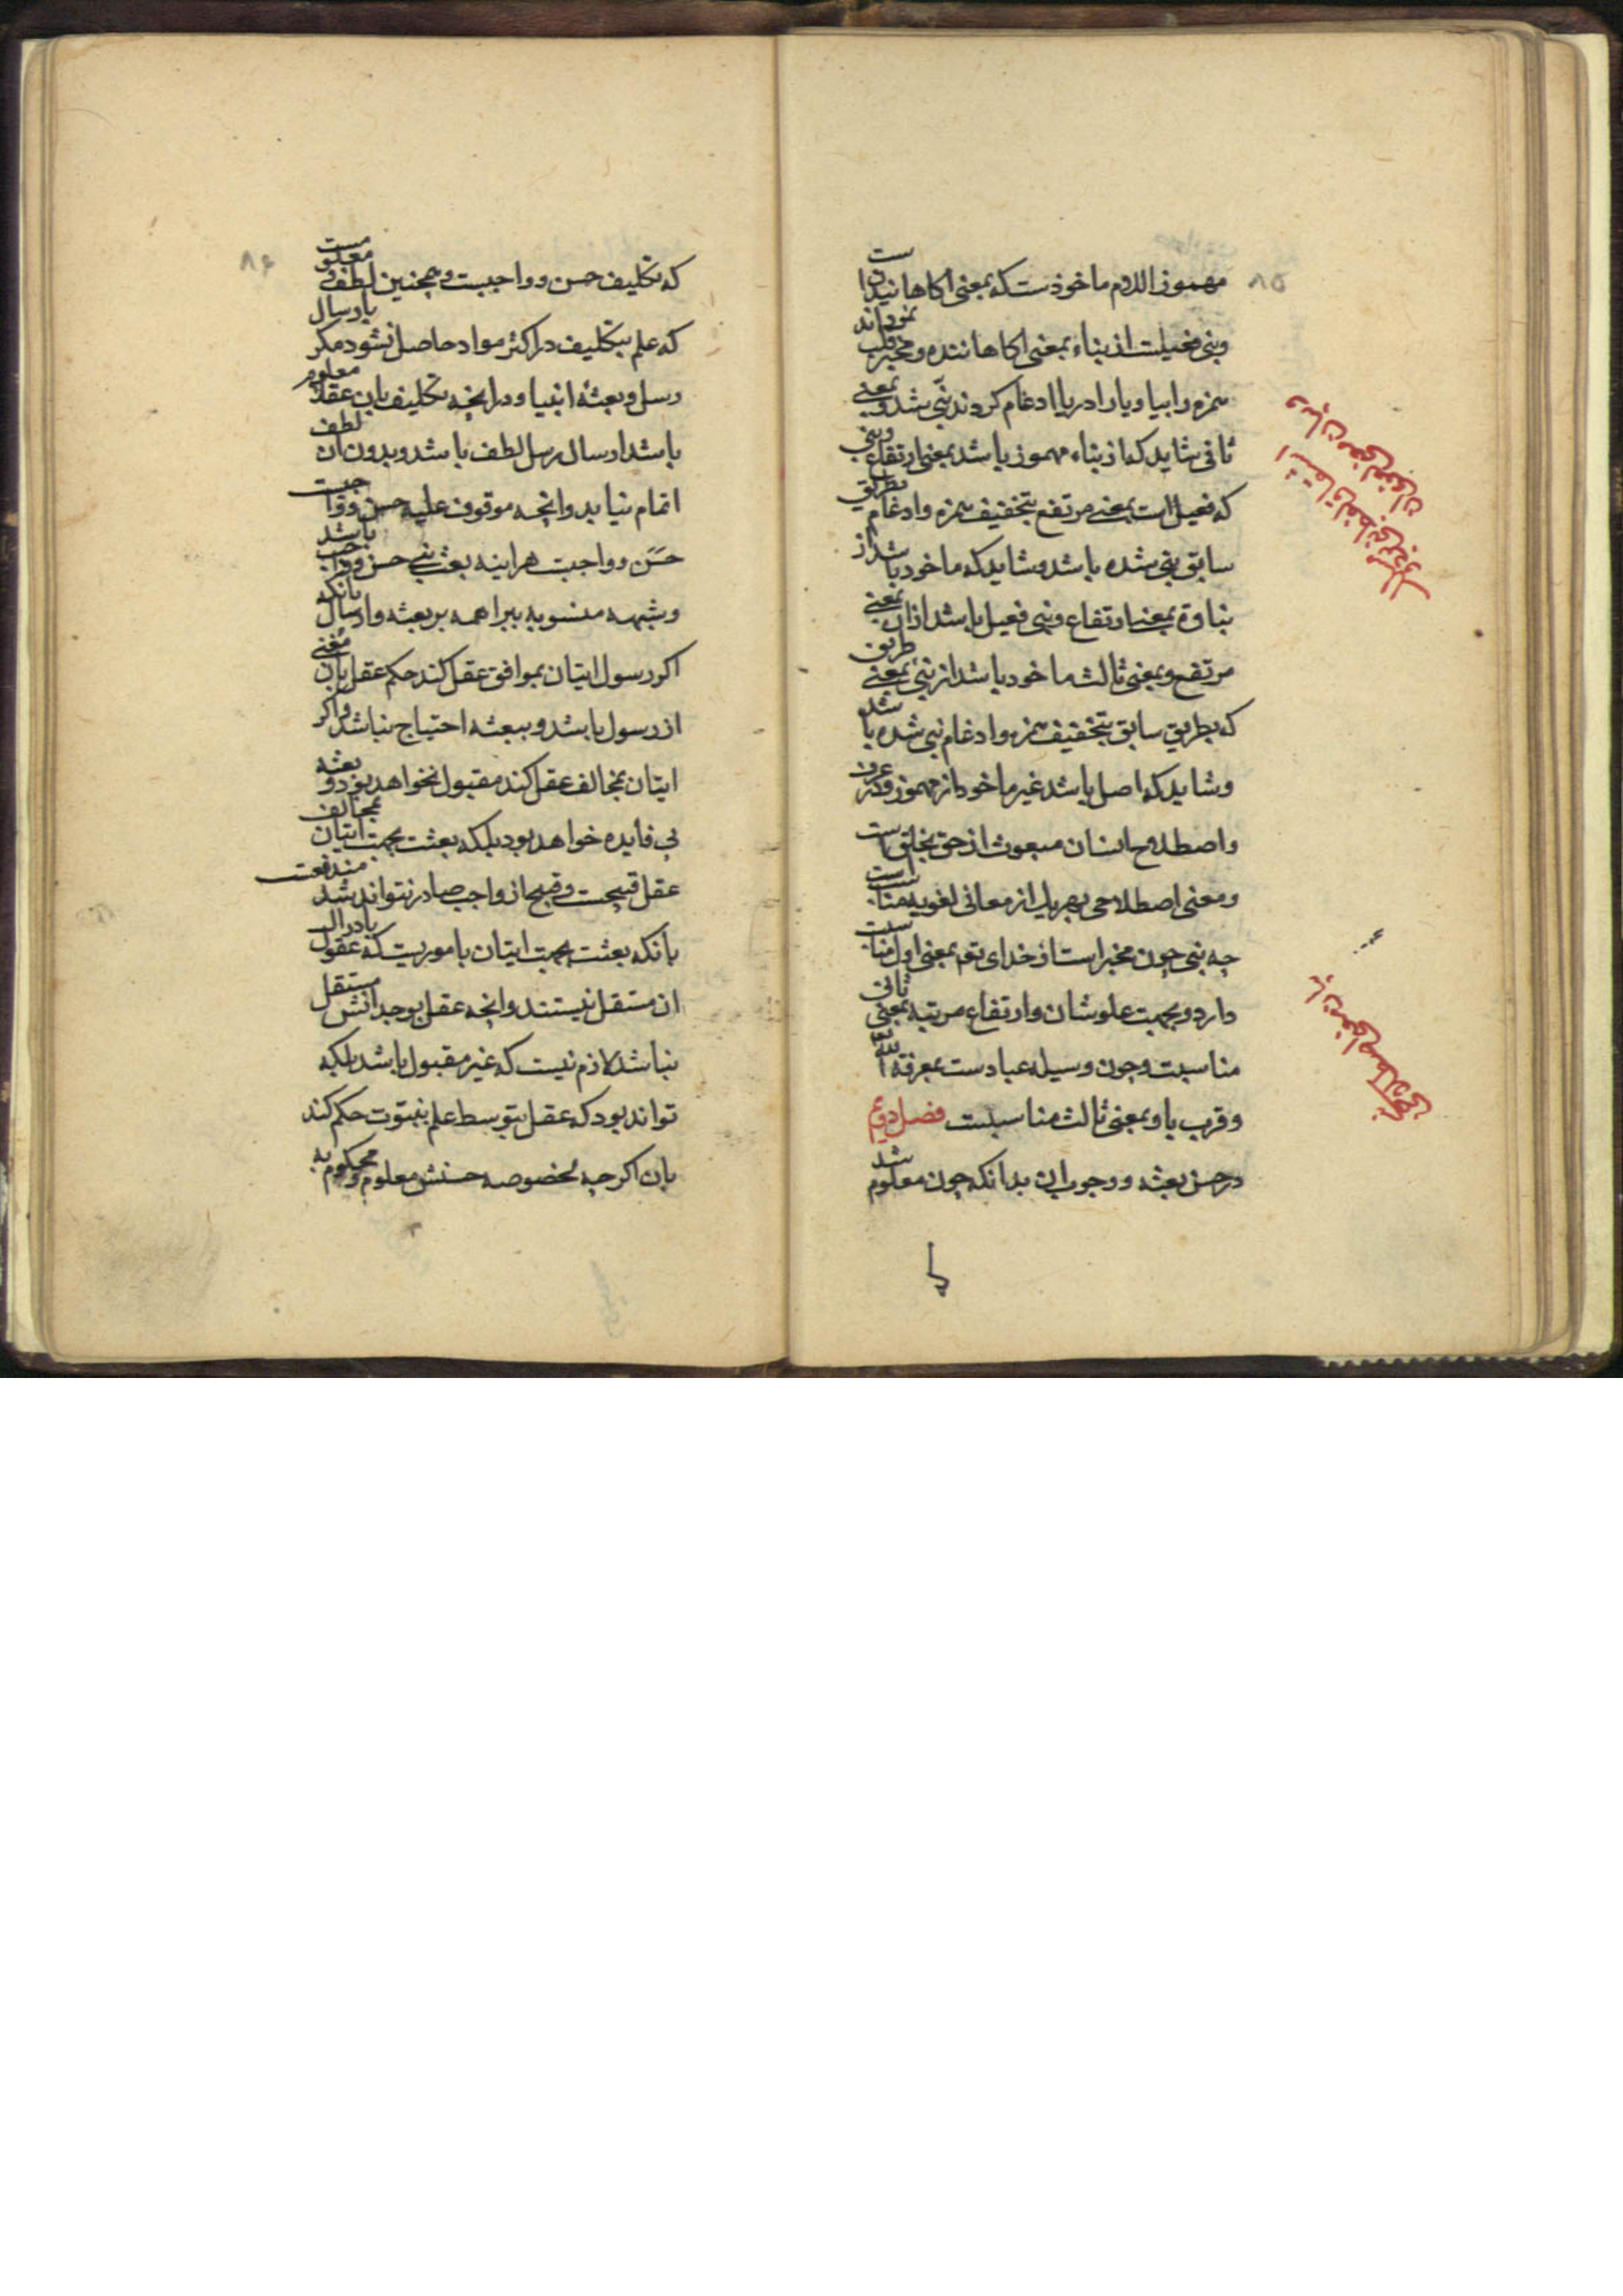 ۸۵
مهموز اللام ماخوذست که بمعنی اکاهانیدن است
ونبی فعیلست از نباء بمعنی اکاهاننده ومخبر وقلب نموده اند
همزه را بیا ویا را در یا ادغام کردند نبی شد وبمعنی
ثانی شاید که از نباء مهموز باشد بمعنی ارتفاع ونبی
که فعیل است بمعنی مرتفع بتخفیف همزه وادغام بطریق
سابق نبی شده باشد وشاید که ماخوذ باشد از
نباوة بمعنی ارتفاع ونبی فعیل باشد ازان بمعنی
مرتفع وبمعنی ثالث ماخوذ باشد از نبئ بمعنی طریق
که بطریق سابق بتخفیف همزه وادغام نبی شده باشد
وشاید که اصل باشد غیر ماخوذ از مهموز ودر عرف
واصطلاح انسان مبعوث از حق بخلق است
ومعنی اصطلاحی بهر یک از معانی لغویه مناسب است
چه نبی چون مخبر است از خدای تع بمعنی اول مناسبت
دارد وبجهت علو شان وارتفاع مرتبه بمعنی ثانی
مناسبت وچون وسیله عبادست بمعرفة الله
وقرب باو بمعنی ثالث مناسبست فصل دوم
در حسن بعثه ووجوب ان بدانکه چون معلوم شد
اشتقاق لفظ نبی ودر بیان معنی لغوی ان
نبی معنی اصطلاحی
۸۶
که تکلیف حسن وواجبست وهمچنین لطف ومعلومست
که علم بتکلیف در اکثر مواد حاصل نشود مکر بارسال
رسل وبعثهٔ انبیا ودر انچه تکلیف بان عقلا معلوم
باشد ارسال رسل لطف باشد وبدون ان لطف
اتمام نیابد وانچه موقوف علیه حسن وواجبست
حسن وواجبست هراینه بعثت نبی حسن وواجب باشد
وشبهه منسوبه ببراهمه بر بعثه وارسال بانکه
اکر رسول اتیان بموافق عقل کند حکم عقل بان مغنی
از رسول باشد وببعثه احتیاج نباشد واکر
اتیان بمخالف عقل کند مقبول نخواهد بود وبعثه
بی فایده خواهد بود بلکه بعثت بجهت اتیان بمخالف
عقل قبیحست وقبیح از واجب صادر نتواند شد مندفعست
بانکه بعثت بجهت اتیان باموریست که عقول بادراک
ان مستقل نیستند وانچه عقل بوجدانش مستقل
نباشد لازم نیست که غیر مقبول باشد بلکه
تواند بود که عقل بتوسط علم بنبوت حکم کند
بان اکرچه بخصوصه حسنش معلوم ومحکوم به